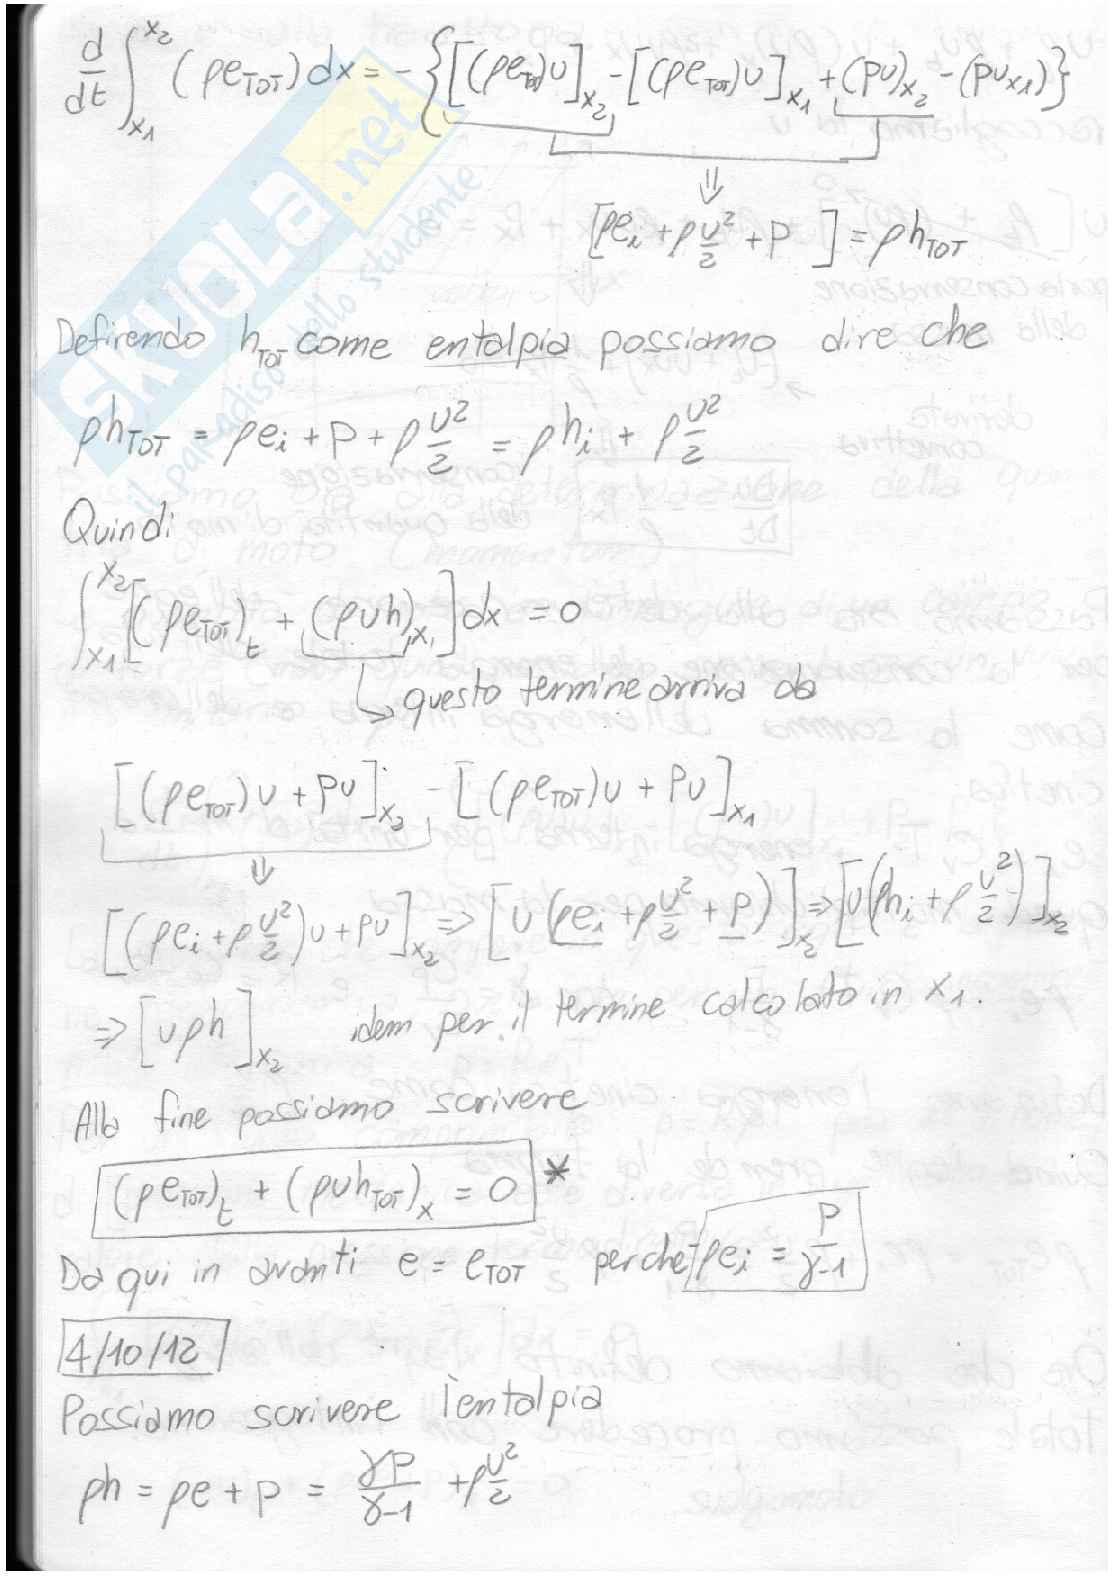 d/dt ∫_{x1}^{x2} (ρe_TOT) dx = - {[(ρe_TOT)u]_{x2} - [(ρe_TOT)u]_{x1} + (pu)_{x2} - (pu_{x1})}
⇓
[ρe_i + ρ u²/2 + p ] = ρh_TOT
Definendo h_TOT come entalpia possiamo dire che
ρh_TOT = ρe_i + p + ρ u²/2 = ρh_i + ρ u²/2
Quindi
∫_{x1}^{x2} [(ρe_TOT)_t + (ρuh)_{x}] dx = 0
↳ questo termine arriva da
[(ρe_TOT)u + pu]_{x2} - [(ρe_TOT)u + pu]_{x1}
⇓
[(ρe_i + ρ u²/2)u + pu]_{x2} ⇒ [u(ρe_i + ρ u²/2 + p)]_{x2} ⇒ [u(ρh_i + ρ u²/2)]_{x2}
⇒ [uρh]_{x2} idem per il termine calcolato in x1.
Alla fine possiamo scrivere
(ρe_TOT)_t + (ρuh_TOT)_x = 0 *
Da qui in avanti e = e_TOT perchè ρe_i = p/(γ-1)
4/10/12
Possiamo scrivere l'entalpia
ρh = ρe + p = γp/(γ-1) + ρ u²/2
SKUOLA.net
il paradiso dello studente